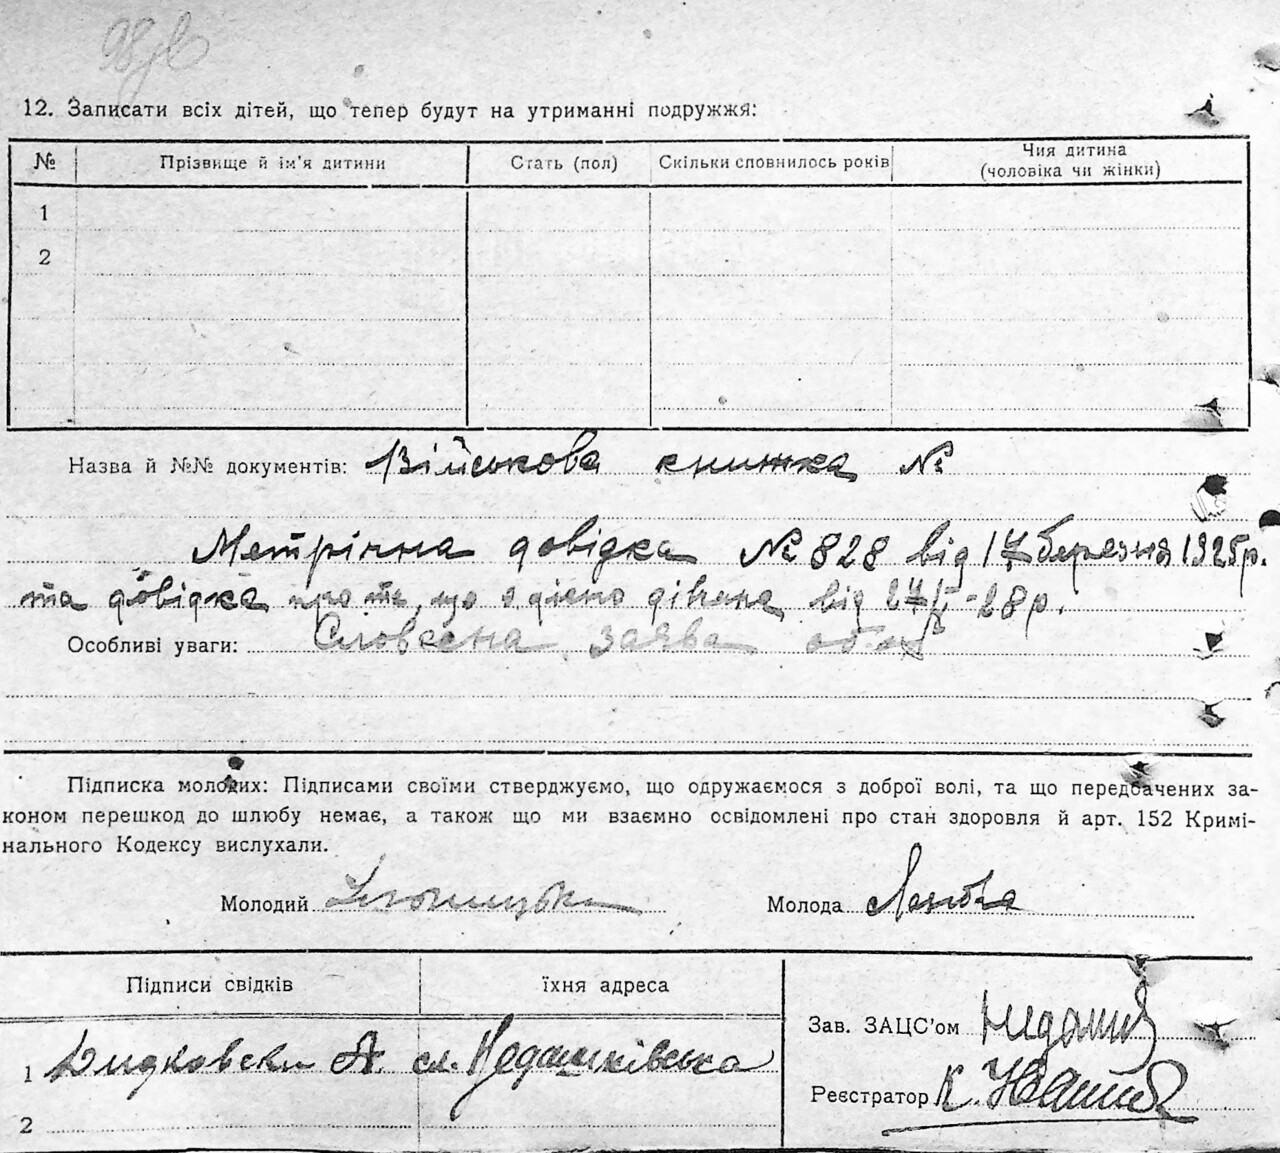 12. Записати всіх дітей, що тепер будут на утриманні подружжя:
№ Прізвище й ім'я дитини Стать (пол) Скільки сповнилось років Чия дитина
(чоловіка чи жінки)
1
2
Назва й №№ документів: Військова книжка №
Метрична довідка № 828 від 17 березня 1925 р.
та довідка про те, що дівчина від 28 р.
Особливі уваги: Словесна заява
Підписка молодих: Підписами своїми стверджуємо, що одружаємося з доброї волі, та що передбачених за-
коном перешкод до шлюбу немає, а також що ми взаємно освідомлені про стан здоровля й арт. 152 Кримі-
нального Кодексу вислухали.
Молодий Молода
Підписи свідків їхня адреса
Зав. ЗАЦС'ом
1 А. сл. Недашківська
Реєстратор К.
2